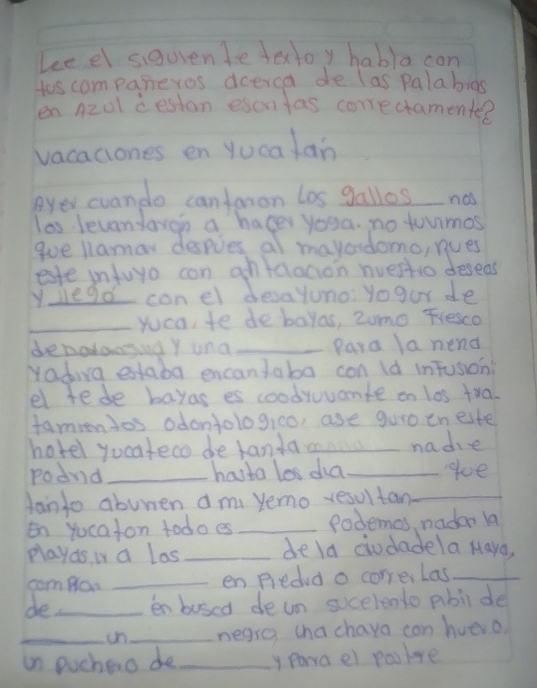 Lee el siguiente texto y habla con
tus compañeros acerca de las palabras
en Azul ¿estan escritas correctamente?
vacaciones en yucatan
Ayer cuando cantaron los gallos nos
los levantaron a hacer yoga. no tuvimos
que llamar despues al mayordomo, pues
este intuyo con nuestro deseos
y llegó con el desayuno: yogur de
______ yuca, te de bayas, zumo fresco
de y una ______ para la nena
yadira estaba encantaba con la infusion:
el te de bayas es coodyuvante en los tra-
tamientos odontologico, ase guro en este
hotel yucateco de tanta nadie
podria ______ hasta los dia ______ que
tanto abunen a mi yerno resultan ______
En yucatan todo es ______ podemos, nadar la
playas, ir a las ______ de la ciudadela Maya,
______ en piedra o correr las ______
de ______ en busca de un sucelento pibil de
______ un ______ negro, una chaya con huevo,
un puchero de ______ y para el postre